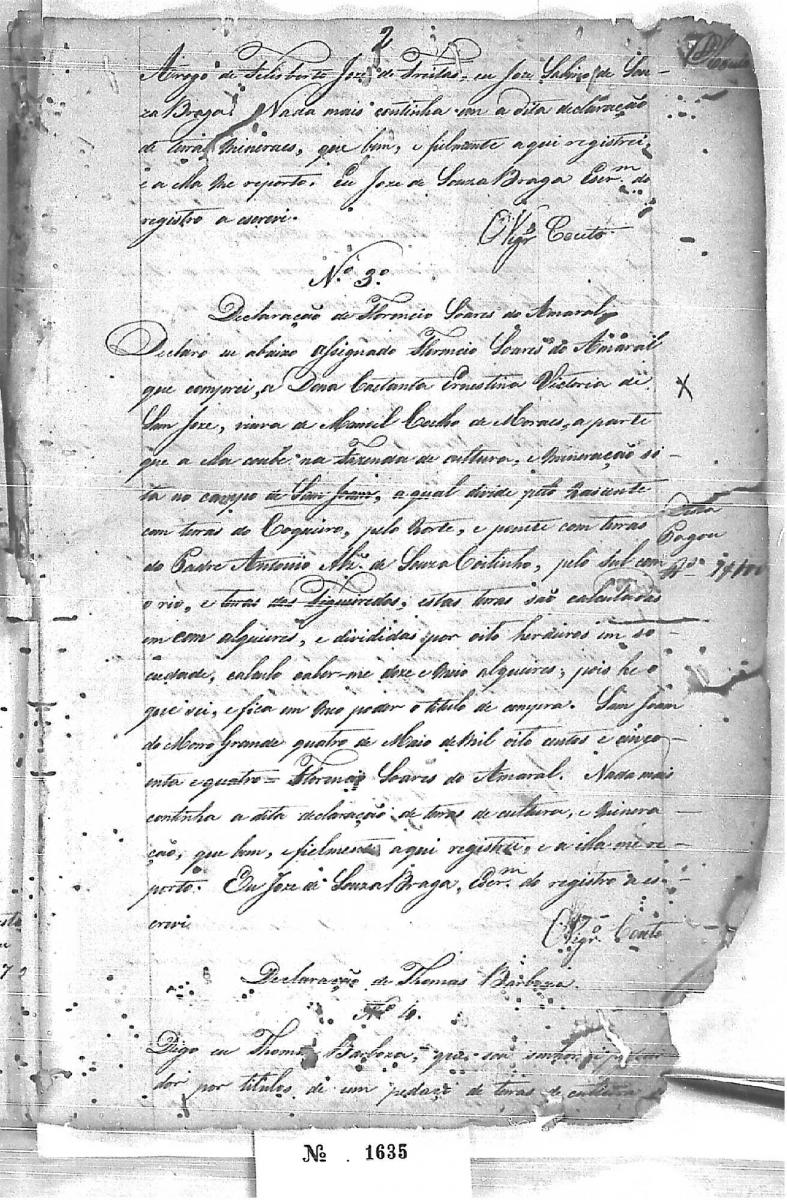 2
Arogo de Felisberto Joze de Freitas, eu Joze Sabino de Sou-
za Braga. Nada mais continha em a dita declaração
de terras Mineraes, que bem, e fielmente aqui registrei,
e a ella me reporto. Eu Joze de Souza Braga Escr.m do
registro a escrevi.
O Vigr.o Couto
N.o 3.o
Declaração de Florencio Soares do Amaral
Declaro eu abaixo assignado Florencio Soares do Amaral
que comprei, a Dona Constanta Ernestina Victoria de
San Joze, viuva de Manoel Coelho de Moraes, a parte
que a ella coube na Fazenda de cultura, e Mineração si-
ta no campo de San a qual divide pelo Nascente
com terras do Coqueiro, pelo Norte, e poente com terras
do Padre Antonio de Souza Coitinho, pelo sul com
o rio, e terras dos Figueiredos, estas terras são calculadas
em cem alqueires, e divididas por oito herdeiros em so-
ciedade, calculo caber-me doze e meio alqueires, pois he o
que sei, e fica em meo poder o titulo de compra. San Joam
do Morro Grande quatro de Maio de Mil oito centos e cinco-
enta e quatro = Florencio Soares do Amaral. Nada mais
continha a dita declaração de terras de cultura, e Minera-
ção, que bem, e fielmente aqui registrei, e a ella me re-
porto. Eu Joze de Souza Braga, Escr.m do registro a es-
crevi.
O Vigr.o Couto
X
Pagou
Declaração de Thomas Barboza.
N.o 4.
Digo eu Thomas Barboza, que sou senhor e possui-
dor por titulos de um pedaço de terras de cultura
No. 1635